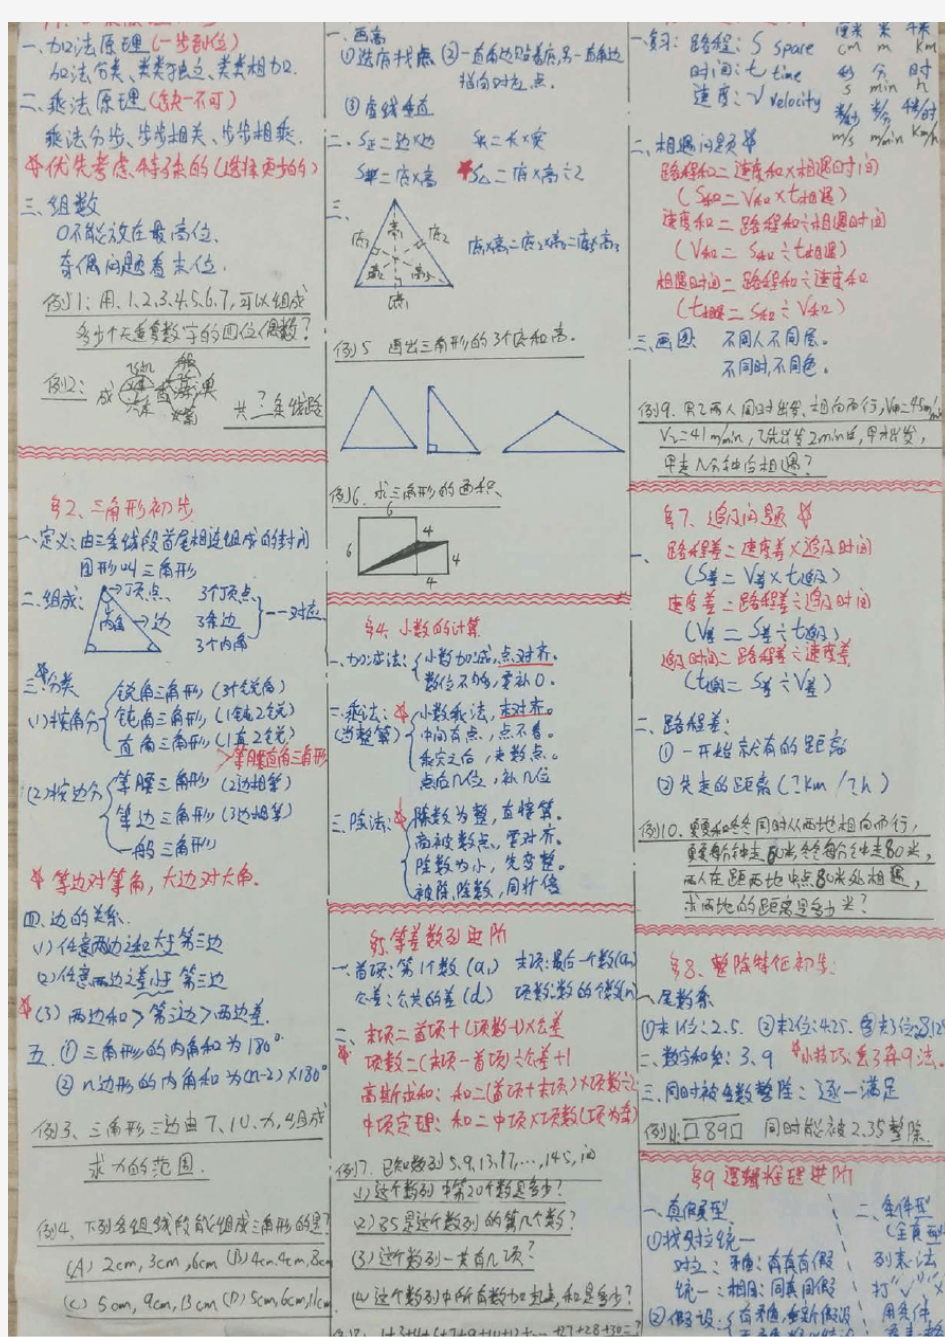 一、加法原理(一步到位)
加法分类、类类独立、类类相加.
二、乘法原理(缺一不可)
乘法分步、步步相关、步步相乘.
优先考虑特殊的(选择更少的)
三、组数
0不能放在最高位.
奇偶问题看末位.
例1:用.1.2.3.4.5.6.7,可以组成
多少个无重复数字的四位偶数?
例2:成
香
澳
共?条线路
§2、三角形初步
一、定义:由三条线段首尾相连组成的封闭
图形叫三角形
二、组成:
顶点
内角
边
3个顶点
3条边
3个内角
一一对应
三、分类
(1)按角分
锐角三角形(3个锐角)
钝角三角形(1钝2锐)
直角三角形(1直2锐)
等腰直角三角形
(2)按边分
等腰三角形(2边相等)
等边三角形(3边相等)
一般三角形
等边对等角,大边对大角.
四、边的关系
(1)任意两边之和大于第三边
(2)任意两边之差小于第三边
(3)两边和>第三边>两边差.
五、①三角形的内角和为180°
②n边形的内角和为(n-2)×180°
例3、三角形三边由7、10、x,组成
求x的范围.
例4、下列各组线段能组成三角形的是?
(A) 2cm,3cm,6cm (B)4cm.4cm,8cm
(C) 5cm,9cm,13cm (D)5cm,6cm,11cm
一、画高
①选底找点 ②一直角边贴着底,另一直角边
指向对应点.
③虚线垂直
二、S正=边×边 S长=长×宽
S平=底×高 S△=底×高÷2
三、
高1
底3
底2
高2
高3
底1
底1×高1=底2×高2=底3×高3
例5 画出三角形的3个底和高.
例6.求三角形的面积、
6
6
4
4
4
§4、小数的计算
一、加减法:
小数加减,点对齐.
数位不够,要补0.
二、乘法:
(当整算)
小数乘法,末对齐。
中间有点,点不看。
乘完之后,来数点。
点后几位,补几位
三、除法:
除数为整,直接算.
商被数点,要对齐.
除数为小,先变整。
被除,除数,同扩倍
§5.等差数列进阶
一、首项:第1个数(a₁) 末项:最后一个数(an)
公差:公共的差(d) 项数:数的个数(n)
二、末项=首项+(项数-1)×公差
项数=(末项-首项)÷公差+1
高斯求和:和=(首项+末项)×项数÷2
中项定理:和=中项×项数(项为奇)
例7.已知数列5.9.13.17,…,145,问
(1)这个数列中第20个数是多少?
(2)85是这个数列的第几个数?
(3)这个数列一共有几项?
(4)这个数列中所有数加起来,和是多少?
一、复习:路程:S space
时间:t time
速度:V velocity
厘米 米 千米
cm m km
秒 分 时
s min h
米/秒 米/分 千米/时
m/s m/min km/h
二、相遇问题
路程和=速度和×相遇时间
(S和=V和×t相遇)
速度和=路程和÷相遇时间
(V和=S和÷t相遇)
相遇时间=路程和÷速度和
(t相遇=S和÷V和)
三、画图 不同人不同层。
不同时,不同色。
例9.甲乙两人同时出发、相向而行,V甲=45m/min
V乙=41m/min,乙先出发2min后,甲才出发,
甲走几分钟后相遇?
§7、追及问题
一、路程差=速度差×追及时间
(S差=V差×t追及)
速度差=路程差÷追及时间
(V差=S差÷t追及)
追及时间=路程差÷速度差
(t追及=S差÷V差)
二、路程差:
①一开始就有的距离
②先走的距离(?km/?h)
例10.
和冬冬同时从两地相向而行,
每分钟走60米,冬冬每分钟走80米,
两人在距两地中点80米处相遇,
求两地的距离是多少米?
§8、整除特征初步
一、尾数系
①末1位:2.5. ②末2位:4.25. ③末3位:8.125
二、数字和系:3、9 小技巧:丢3弃9法。
三、同时被多数整除:逐一满足
例11.□89□ 同时能被2.3.5整除.
§9 逻辑推理进阶
一、真假型
①找对立统一
对立:矛盾:有真有假
统一:相同:同真同假
②假设:
二、条件型
(全真
列表法
打"√""×"